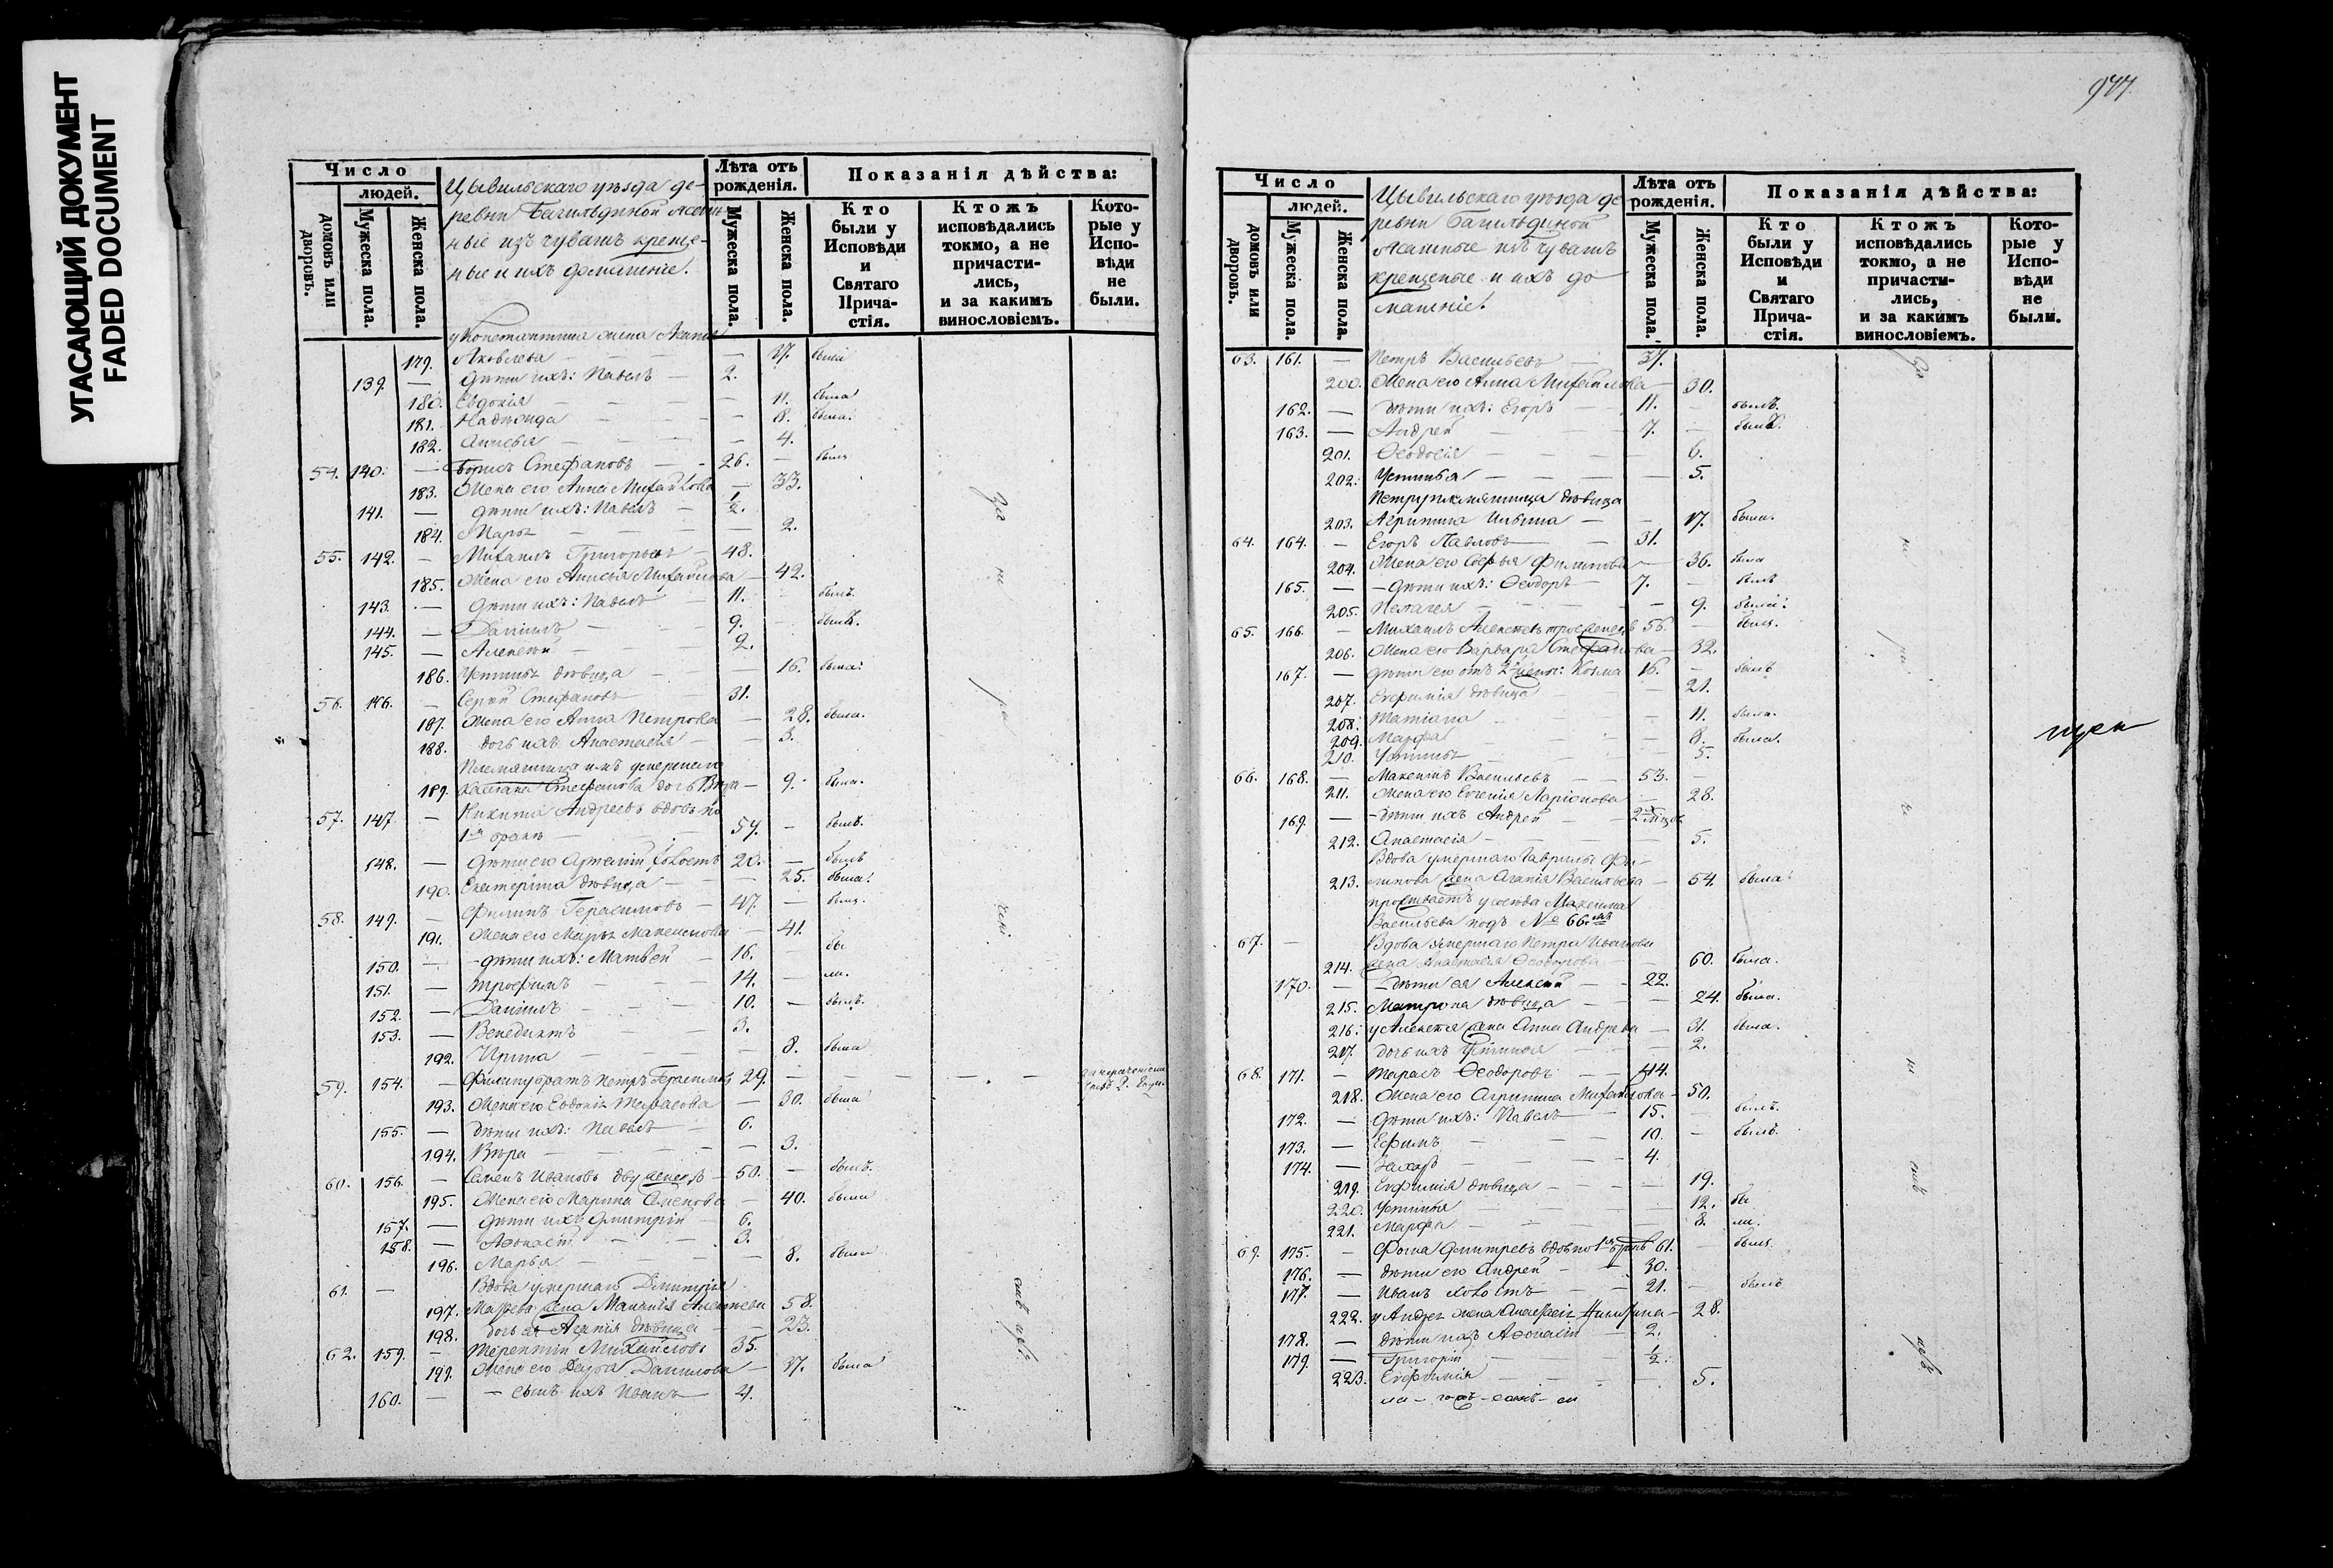 УГАСАЮЩИЙ ДОКУМЕНТ
FADED DOCUMENT
Число
людей.
домовъ или дворовъ.
Мужеска пола.
Женска пола.
Цывильскаго уѣзда де-
ревни Багильдиной ясаш-
ные изъ чувашъ креще-
ные и ихъ домашніе.
Лѣта отъ рожденія.
Мужеска пола.
Женска пола.
Показанія дѣйства:
Кто были у Исповѣди и Святаго Прича-стія.
Ктожъ исповѣдались токмо, а не причасти-лись, и за какимъ винословіемъ.
Кото-рые у Испо-вѣди не были.
у Константина жена
179. Яковлева — 27. была
139. — дѣти ихъ: Павелъ — 2.
180. Евдокія — 11. была
181. Надежда — 8. была
182. — 4.
54. 140. — Борисъ Стефановъ — 26. — былъ
183. Жена его Анна Михайлова — 33.
141. — дѣти ихъ: Павелъ — 1/2.
184. Марья — 2.
55. 142. — Михаилъ Григорьевъ — 48.
185. Жена его Анисья Михайлова — 42.
143. — дѣти ихъ: Павелъ — 11. былъ
144. — Даніилъ — 9. — былъ.
145. — Алексѣй 2.
186. Устинья дѣвица — 16. была
56. 146. — Сергѣй Стефановъ 31.
187. Жена его Анна Петрова — 28. была.
188. дочь ихъ Анастасія — 3.
Племянница имъ умершаго
189. Стефанова дочь — 9. была.
57. 147 — Никита Андреевъ вдовъ по
1мъ бракѣ — 54. — былъ.
148. — дѣти его Артемій холостъ 20. — былъ
190. Екатерина дѣвица — 25. была.
58. 149. — Филипъ Герасимовъ — 47. — былъ.
191. Жена его Марья Максимова — 41.
150. — дѣти ихъ: Матвѣй — 16. — бы
151. — Трофимъ — 14. — ли.
152. — Даніилъ — 10. — былъ.
153. — Венедиктъ — 3.
192. Ирина — 8. была
59. 154. — Филипу братъ Петръ Герасимовъ 29. —
193. Жена его Евдокія Тарасова — 30. была
155. — дѣти ихъ: Павелъ — 6.
194. Вѣра — 3.
60. 156. — Семенъ Ивановъ двуженецъ — 50. — былъ.
195. Жена его Марина Семенова — 40. была
157. — дѣти ихъ Дмитрій — 6.
158. — Афонасій — 3.
196. Марья — 8. была
61. — Вдова умершаго Дмитрія
197. жена Меланія Алексѣева 58.
198. дочь ея Агапія дѣвица — 23.
62. 159. — Терентій Михайловъ 35.
199. жена его Ѳедора Данилова — 37. была
160. — сынъ ихъ Иванъ — 4.
977.
Число
людей.
домовъ или дворовъ.
Мужеска пола.
Женска пола.
Цывильскаго уѣзда де
ревни Багильдиной
ясашные изъ чувашъ
крещеные и ихъ до
машніе.
Лѣта отъ рожденія.
Мужеска пола.
Женска пола.
Показанія дѣйства:
Кто были у Исповѣди и Святаго Прича-стія.
Ктожъ исповѣдались токмо, а не причасти-лись, и за какимъ винословіемъ.
Кото-рые у Испо-вѣди не были.
63. 161. — Петръ Васильевъ — 37.
200. Жена его Анна Михайлова — 30.
162. — дѣти ихъ: Егоръ — 11. — былъ.
163. — Андрей — 7. — былъ.
201. Ѳеодосія — 6.
202. Устинья — 5.
Петру племянница дѣвица
203. Агрипина Ильина — 17. была.
64. 164. — Егоръ Павловъ — 31.
204. Жена его Софья Филипова — 36. была
165. — дѣти ихъ: Ѳеодоръ — 7. — былъ
205. Пелагея — 9. была.
65. 166. — Михаилъ Алексѣевъ троеженецъ 56. — былъ.
206. Жена его Варвара Стефанова — 32.
167. — дѣти его отъ 2й жены: Козма 16. — былъ
207. Евфимія дѣвица — 21.
208. Татіана — 11. была.
209. Марфа — 8. была.
210. Устинья — 5.
66. 168. — Максимъ Васильевъ — 53. —
211. Жена его Евгенія Ларіонова — 28.
169. — дѣти ихъ Андрей — 2 мѣся.
212. Анастасія — 5.
Вдова умершаго Гаврилы Фи-
213. липова жена Агапія Васильева — 54. была
проживаетъ у сосѣда Максима
Васильева подъ № 66мъ
67. — Вдова умершаго Петра Иванова
214. жена Анастасія Ѳеодорова — 60. была.
170. — дѣти ея Алексѣй — 22.
215. Матрона дѣвица — 24. была.
216. у Алексѣя жена Анна Андреева — 31. была.
217. дочь ихъ Устинья — 2.
68. 171. — Тарасъ Ѳеодоровъ — 44.
218. Жена его Агрипина Михайлова — 50.
172. — дѣти ихъ: Павелъ — 15. — былъ.
173. — Ефимъ — 10. — былъ.
174. — Захаръ — 4.
219. Евфимія дѣвица — 19.
220. Устинья — 12. бы
221. Марфа — 8. ли.
69. 175. — Фома Дмитревъ вдовъ по 1мъ бракѣ 61. — былъ.
176. — дѣти его Андрей — 30.
177. — Иванъ холостъ — 21. — былъ
222. у Андрея жена Анастасія Никитина — 28.
178. — дѣти ихъ Афонасій — 2.
179. — Григорій — 1/2.
223. Евфимія — 5.